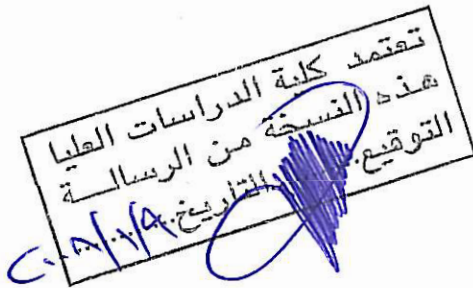 تعتمد كلية الدراسات العليا
هذه النسخة من الرسالــة
التوقيع.......التاريخ..........